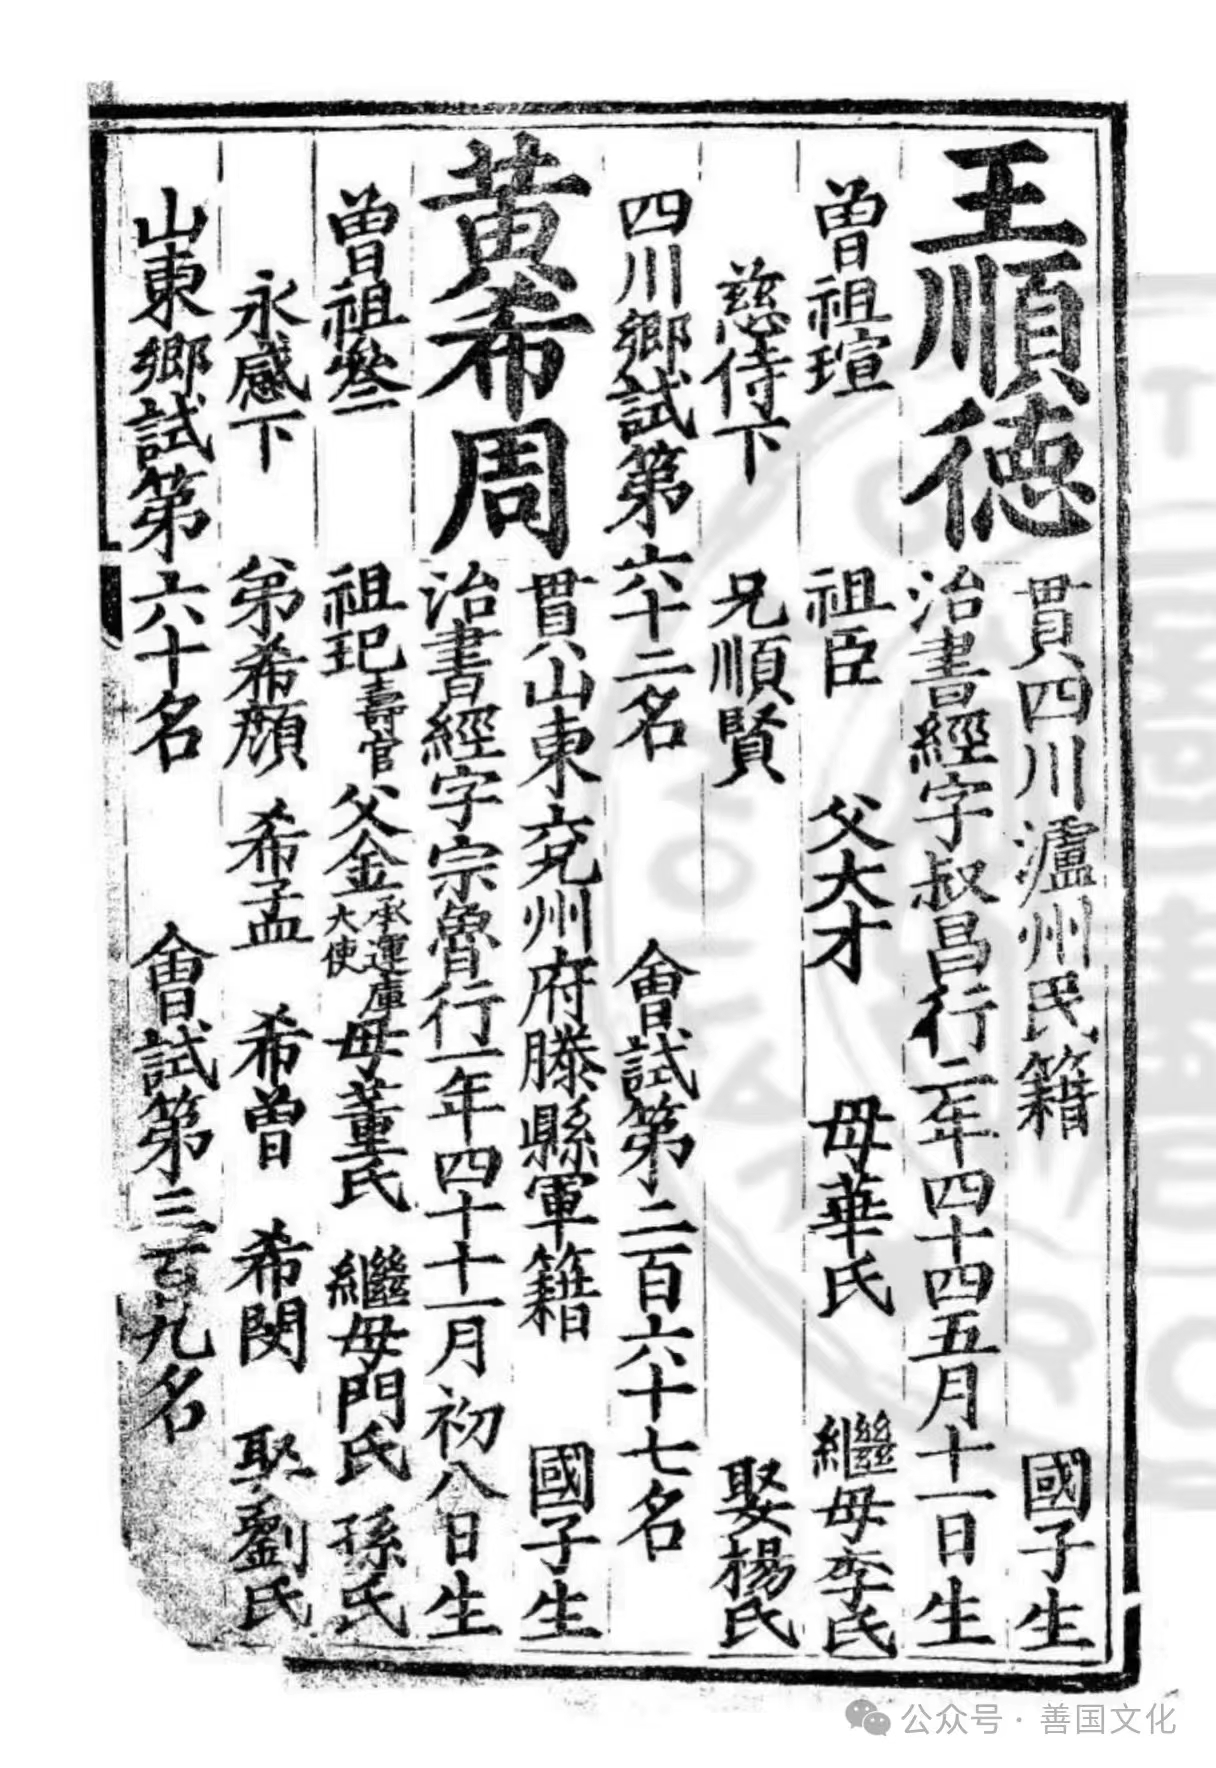 王順德
貫四川瀘州民籍 國子生
治書經字叔昌行二年四十四五月十一日生
曾祖瑄 祖臣 父大才 母華氏 繼母李氏
慈侍下 兄順賢 娶楊氏
四川鄉試第六十二名 會試第二百六十七名
黃希周
貫山東兗州府滕縣軍籍 國子生
治書經字宗魯行一年四十十一月初八日生
曾祖叄 祖玘壽官 父金承運庫大使 母董氏 繼母門氏 孫氏
永感下 弟希顏 希孟 希曾 希閔 娶劉氏
山東鄉試第六十名 會試第三百九名
公众号·善国文化